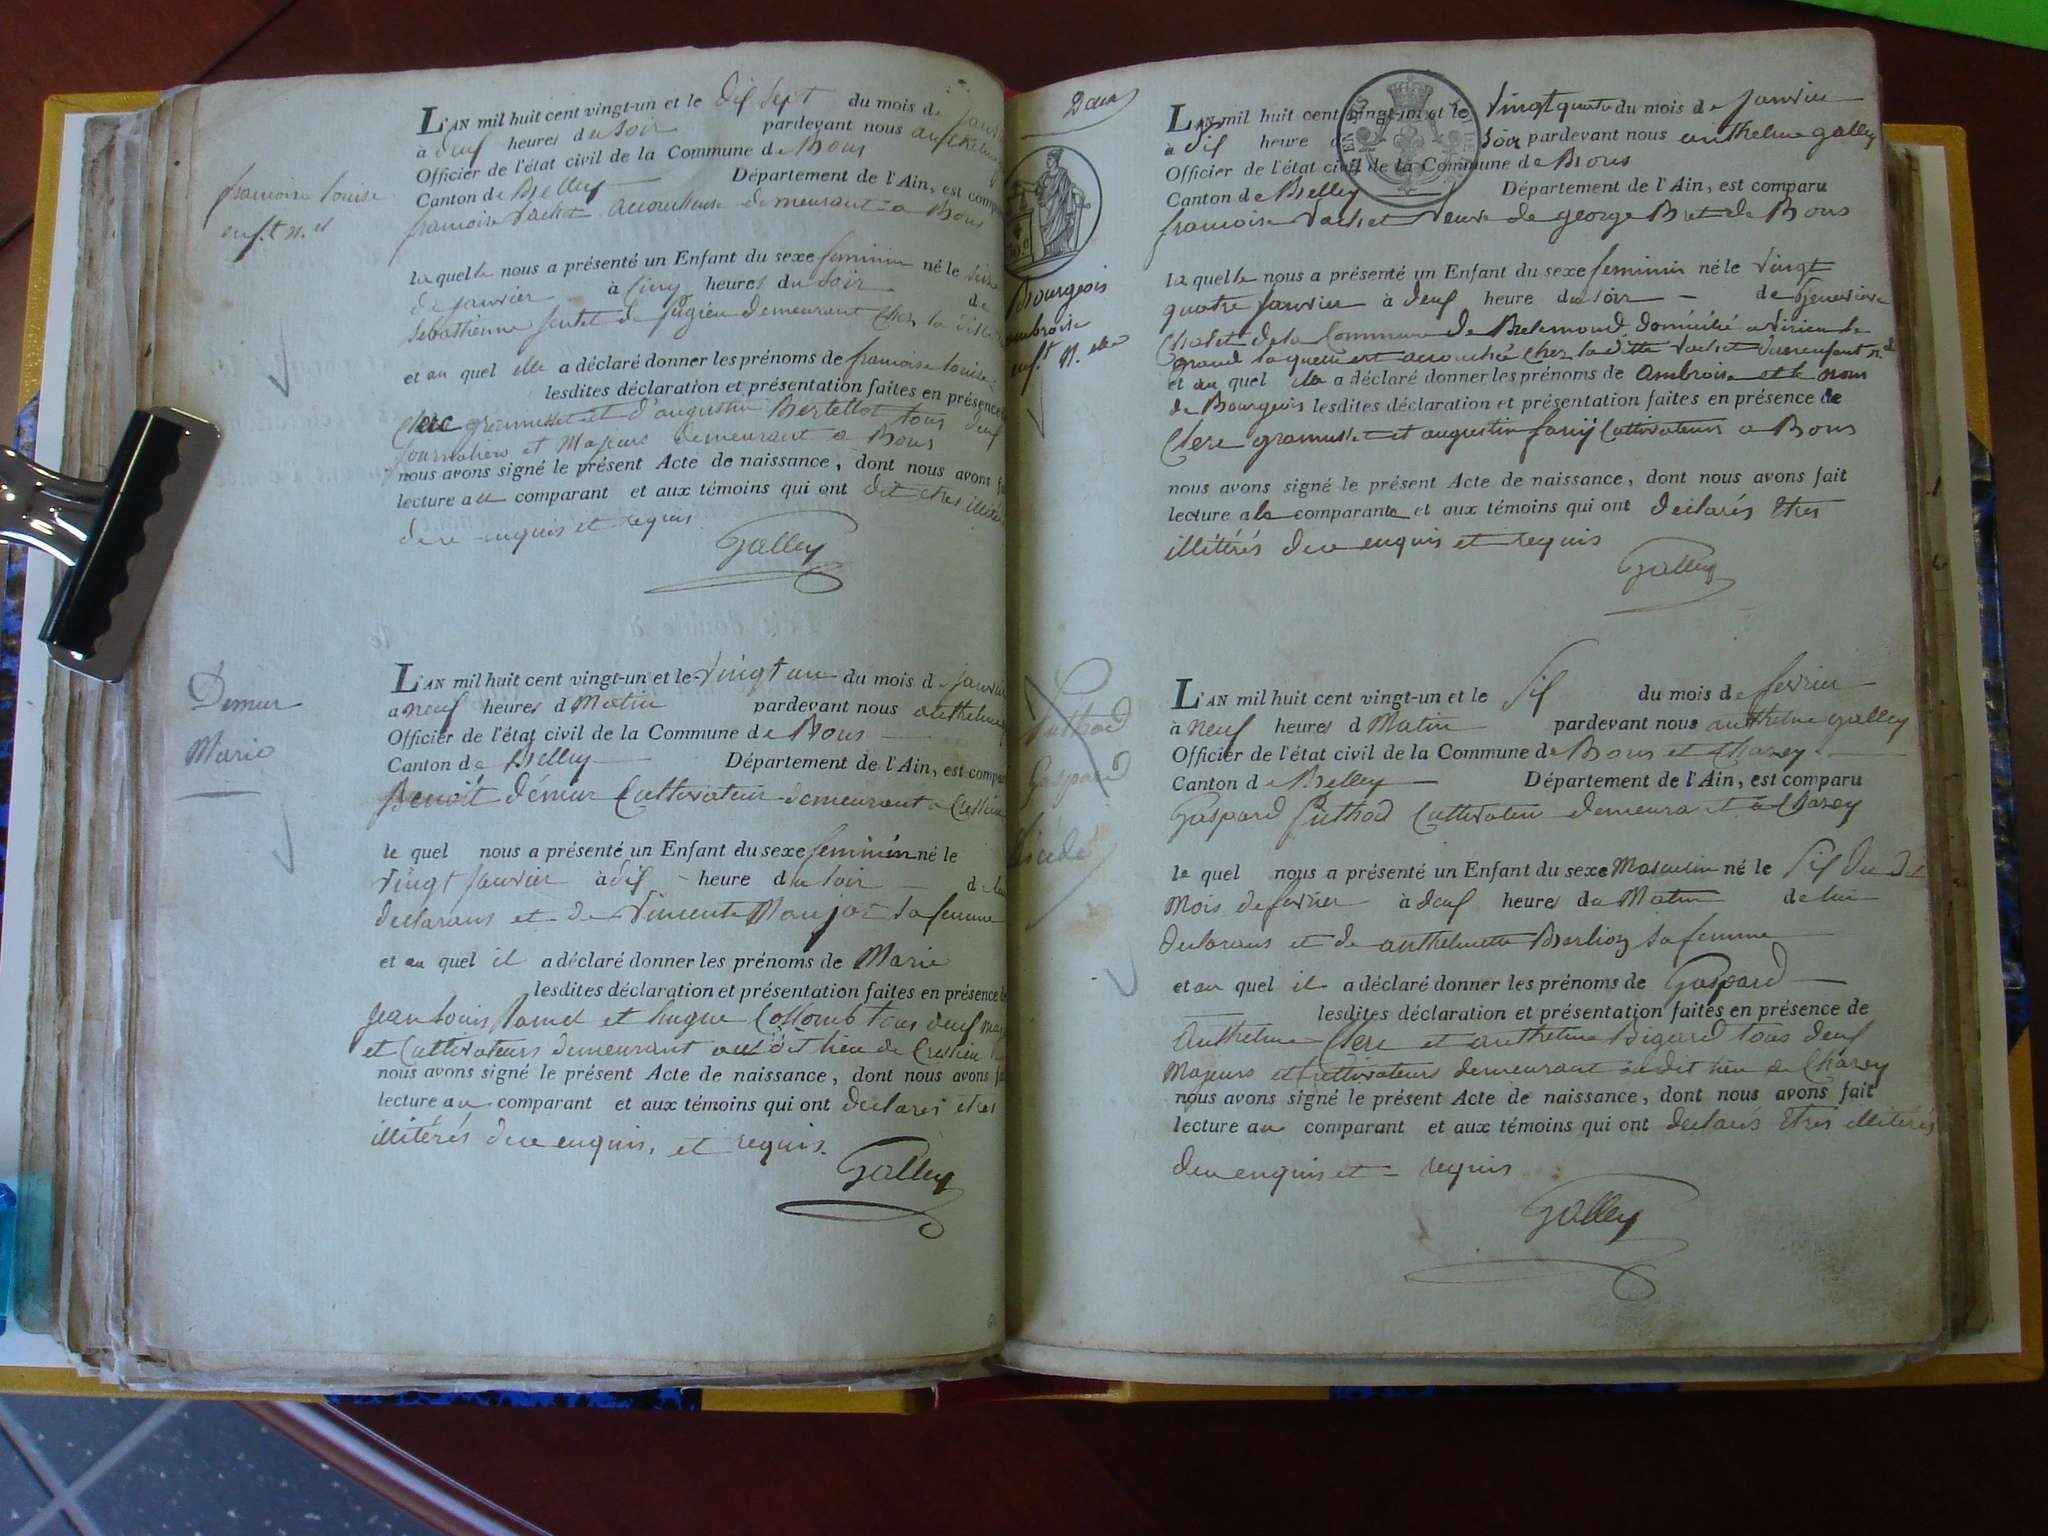 francoise louise
enf.t n.el
L'AN mil huit cent vingt-un et le dix sept du mois de janv
à deux heures du soir pardevant nous anthelme
Officier de l'état civil de la Commune de Bons
Canton de Belley Département de l'Ain, est comp
francoise vachet accoucheuse demeurant a Bons
laquelle nous a présenté un Enfant du sexe feminin né le
de janvier à cinq heures du soir de
sebastienne demeurant chez la
et au quel elle a déclaré donner les prénoms de francoise louise
lesdites déclaration et présentation faites en présence
Clerc gramusset et d'augustin Bertellot tous deux
journaliers et Majeurs demeurant a Bons
nous avons signé le présent Acte de naissance, dont nous avons f
lecture au comparant et aux témoins qui ont dit etres illité
de ce enquis et requis
Galley
Demur
Marie
L'AN mil huit cent vingt-un et le vingt un du mois de janvier
à neuf heures d Matin pardevant nous anthelme
Officier de l'état civil de la Commune de Bons
Canton de Belley Département de l'Ain, est compar
Benoit démur Cultivateur demeurant a Cressieu
le quel nous a présenté un Enfant du sexe feminin né le
vingt janvier à dix heure du soir de lui
declarans et de vincente Maujot sa femme
et au quel il a déclaré donner les prénoms de Marie
lesdites déclaration et présentation faites en présence de
jean Louis et hugue Collomb tous deux maj
et Cultivateurs demeurant au dit lieu de Cressieu
nous avons signé le présent Acte de naissance, dont nous avons fa
lecture au comparant et aux témoins qui ont declarés etres
illitérés de ce enquis, et requis.
Galley
Deux
Bourgeois
ambroise
enf.t n.elle
L'AN mil huit cent vingt-un et le vingt quatre du mois de janvier
à dix heure d soir pardevant nous anthelme galley
Officier de l'état civil de la Commune de Bons
Canton de Belley Département de l'Ain, est comparu
francoise vachet veuve de george Bret de Bons
laquelle nous a présenté un Enfant du sexe feminin né le vingt
quatre janvier à deux heure du soir de genevieve
Chalet de la Commune de Belemond domicilié a virieu le
grand laquelle est accouchée chez la ditte vachet d'un enfant n.el
et au quel elle a déclaré donner les prénoms de ambroise et le nom
de Bourgeois lesdites déclaration et présentation faites en présence de
Clere gramusset et augustin Cultivateurs a Bons
nous avons signé le présent Acte de naissance, dont nous avons fait
lecture à la comparante et aux témoins qui ont declarés Etres
illitérés de ce enquis et requis
Galley
Puthod
Gaspard
décédé
L'AN mil huit cent vingt-un et le six du mois de fevrier
à neuf heures d Matin pardevant nous anthelme galley
Officier de l'état civil de la Commune de Bons et Chazey
Canton de Belley Département de l'Ain, est comparu
Gaspard Puthod Cultivateur demeurant a Chazey
le quel nous a présenté un Enfant du sexe Masculin né le six du dit
Mois de fevrier à deux heures du Matin de lui
declarans et de anthelmette Berlioz sa femme
et au quel il a déclaré donner les prénoms de Gaspard
lesdites déclaration et présentation faites en présence de
Anthelme Clerc et anthelme Bigard tous deux
Majeurs et Cultivateurs demeurant au dit lieu de Chazey
nous avons signé le présent Acte de naissance, dont nous avons fait
lecture au comparant et aux témoins qui ont declarés Etres illitérés
de ce enquis et requis
Galley